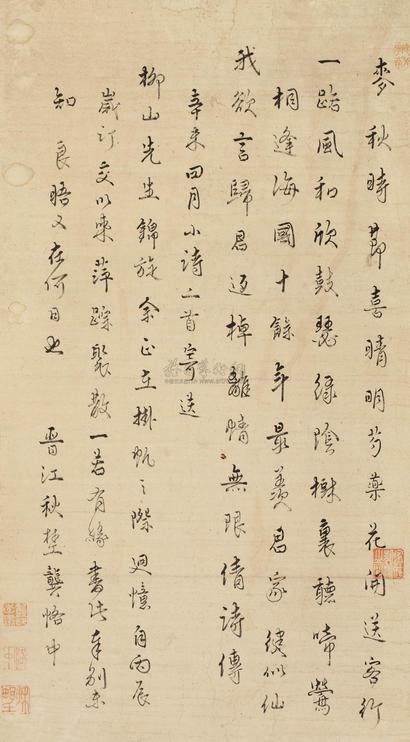 麥秋時節喜晴明芍藥花開送客行
一路風和欣鼓瑟綠陰樹裏聽啼鶯
相逢海國十餘年最羨君家健似仙
我欲言歸君返棹離情無限倩詩傳
辛未四月小詩二首寄送
柳山先生錦旋余正在掛帆之際迴憶自丙辰
歲訂交以來萍蹤聚散一若有緣書此奉別未
知良晤又在何日也
晉江秋堂龔悟中